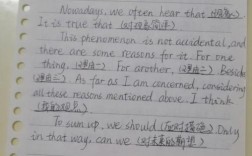 Nowadays, we often hear that (现象).
It is true that (对现象简述)
This phenomenon is not accidental, and
there are some reasons for it. For one
thing, (理由一) For another, (理由二) Beside
(理由三) As far as I am concerned, considering
all these reasons mentioned above, I think
(我的观点)
To sum up, we should (应对措施) Only
in that way, can we (对未来的期望)